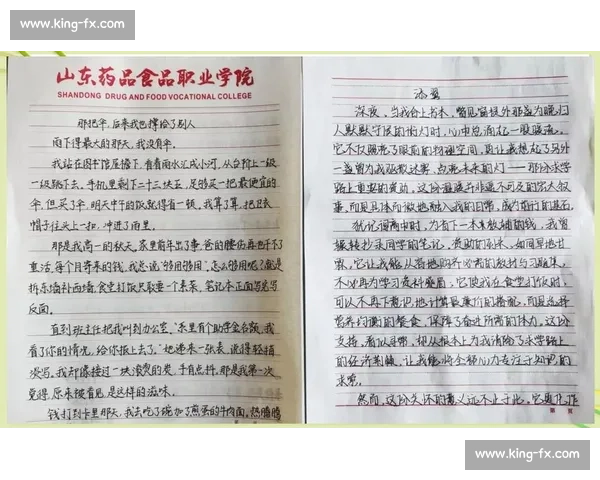 www.king-fx.com
山东药品食品职业学院
SHANDONG DRUG AND FOOD VOCATIONAL COLLEGE
那把伞，后来我也撑给了别人
雨下得最大的那天，我没有伞。
我站在图书馆屋檐下，看着雨水汇成小河，从台阶上一级
一级跳下去。手机里剩下二十三块五，足够买一把最便宜的
伞，但买了伞，明天中午的饭就得省一顿。我算了算，把卫衣
帽子往头上一扣，冲进了雨里。
那是我高一的秋天，家里前年出了事，爸的腰伤再也干不了
重活，每个月寄来的钱，我总说"够用够用"，怎么够用呢？都是
拆东墙补西墙，食堂打饭只敢要一个素菜，笔记本正面写完写
反面。
直到班主任把我叫到办公室，"系里有个助学金名额，我
看了你的情况，给你报上去了。"她递来一张表，说得轻描
淡写，我却像接过一块滚烫的炭，手有点抖，那是我第一次
觉得，原来被看见，是这样的滋味。
钱打到卡里那天，我去吃了碗加了煎蛋的牛肉面，热腾腾
添翼
深夜，当我合上书本，瞥见窗棂外那盏为晚归
人默默守候的街灯时，心中总涌起一股暖流。
它不仅照亮了眼前的物理空间，更让我想起了另外
一盏曾为我驱散迷雾、点亮未来的灯——那份求学
路上重要的资助，这份温暖并非遥不可及的宏大叙
事，而是具体而微地融入我的日常，成为前行的基石。
犹记得高中时，为省下一本本教辅的钱，我曾
辗转抄录同学的笔记。资助的到来，如同旱地甘
霖，它让我能从容地购齐必需的教材与习题集，
不必再为学习资料蹙眉；它使我在食堂打饭时，
可以不再下意识地计算最廉价的搭配，而是选择
营养均衡的餐食，保障了奋进所需的体力。这份
支持，看似寻常，却从根本上为我清除了求学路上
的经济荆棘，让我能将全部心力专注于知识的
求索。
然而，这份关怀的意义远不止于此。它是几作
第 页
第 页
www.king-fx.com